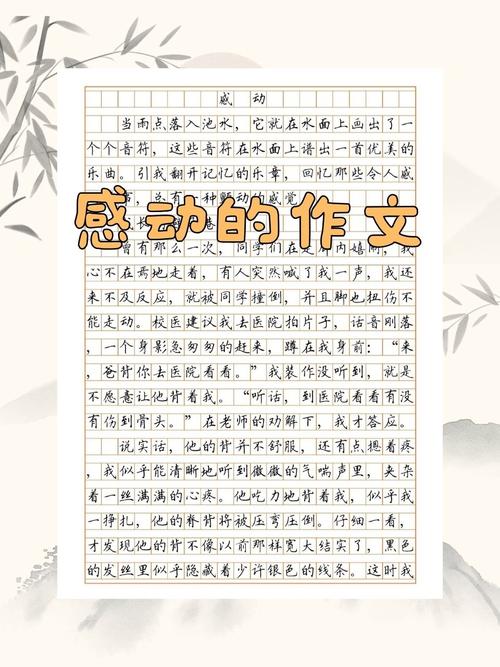 感动
当雨点落入池水，它就在水面上画出了一
个个音符，这些音符在水面上谱出一首优美的
乐曲。引我翻开记忆的乐章，回忆那些令人感
总有一种颤动的感觉
感动的作文
有那么一次，同学们在
心不在焉地走着，有人突然喊了我一声，我还
来不及反应，就被同学撞倒，并且脚也扭伤不
能走动。校医建议我去医院拍片子，话音刚落
，一个身影急匆匆的赶来，蹲在我身前：“来
，爸背你去医院看看。”我装作没听到，就是
不愿意让他背着我。“听话，到医院看看有没
有伤到骨头。”在老师的劝解下，我才答应。
说实话，他的背并不舒服，还有点摁着疼
，我似乎能清晰地听到微微的气喘声里，夹杂
着一丝满满的心疼。他吃力地背着我，似乎我
一挣扎，他的脊背将被压弯压倒。仔细一看，
才发现他的背不像以前那样宽大结实了，黑色
的发丝里似乎隐藏着少许银色的线条。这时我